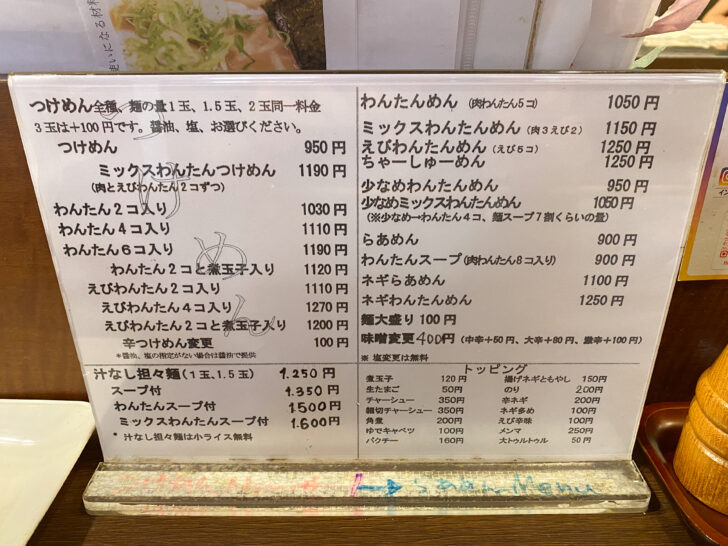 つけめん全種、麺の量1玉、1.5玉、2玉同一料金
3玉は+100円です。醤油、塩、お選びください。
つけめん 950円
ミックスわんたんつけめん 1190円
(肉とえびわんたん2コずつ)
わんたん2コ入り 1030円
わんたん4コ入り 1110円
わんたん6コ入り 1190円
わんたん2コと煮玉子入り 1120円
えびわんたん2コ入り 1110円
えびわんたん4コ入り 1270円
えびわんたん2コと煮玉子入り 1200円
辛つけめん変更 100円
*醤油、塩の指定がない場合は醤油で提供
つけめん
汁なし担々麺(1玉、1.5玉) 1.250円
スープ付 1.350円
わんたんスープ付 1500円
ミックスわんたんスープ付 1.600円
* 汁なし担々麺は小ライス無料
わんたんめん (肉わんたん5コ) 1050円
ミックスわんたんめん (肉3えび2) 1150円
えびわんたんめん (えび5コ) 1250円
ちゃーしゅーめん 1250円
少なめわんたんめん 950円
少なめミックスわんたんめん 1050円
(※少なめ→わんたん4コ、麺スープ7割くらいの量)
らあめん 900円
わんたんスープ(肉わんたん8コ入り) 900円
ネギらあめん 1100円
ネギわんたんめん 1250円
麺大盛り 100円
味噌変更 400円 (中辛+50円、大辛+80円、激辛+100円)
※ 塩変更は無料
トッピング
煮玉子 120円 揚げネギともやし 150円
生たまご 50円 のり 200円
チャーシュー 350円 辛ネギ 200円
細切チャーシュー 350円 ネギ多め 100円
角煮 200円 えび辛味 100円
ゆでキャベツ 100円 メンマ 250円
パクチー 160円 大トゥルトゥル 50円
らあめん Menu